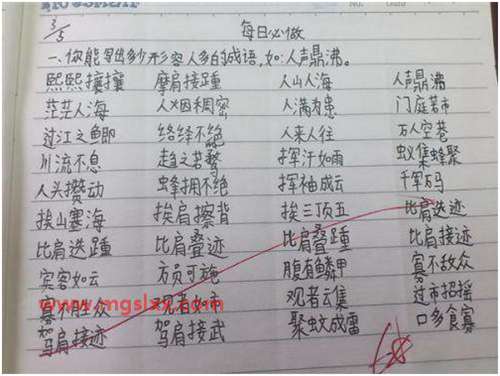 3/5
每日必做
一、你能写出多少形容人多的成语,如:人声鼎沸。
熙熙攘攘 摩肩接踵 人山人海 人声鼎沸
茫茫人海 人烟稠密 人满为患 门庭若市
过江之鲫 络绎不绝 人来人往 万人空巷
川流不息 趋之若鹜 挥汗如雨 蚁集蜂聚
人头攒动 蜂拥不绝 挥袖成云 千军万马
挨山塞海 挨肩擦背 挨三顶五 比肩迭迹
比肩迭踵 比肩叠迹 比肩叠踵 比肩接迹
宾客如云 方员可施 腹有鳞甲 寡不敌众
寡不胜众 观者如市 观者云集 过市招摇
驾肩接迹 驾肩接武 聚蚊成雷 口多食寡
www.mgslzx.com